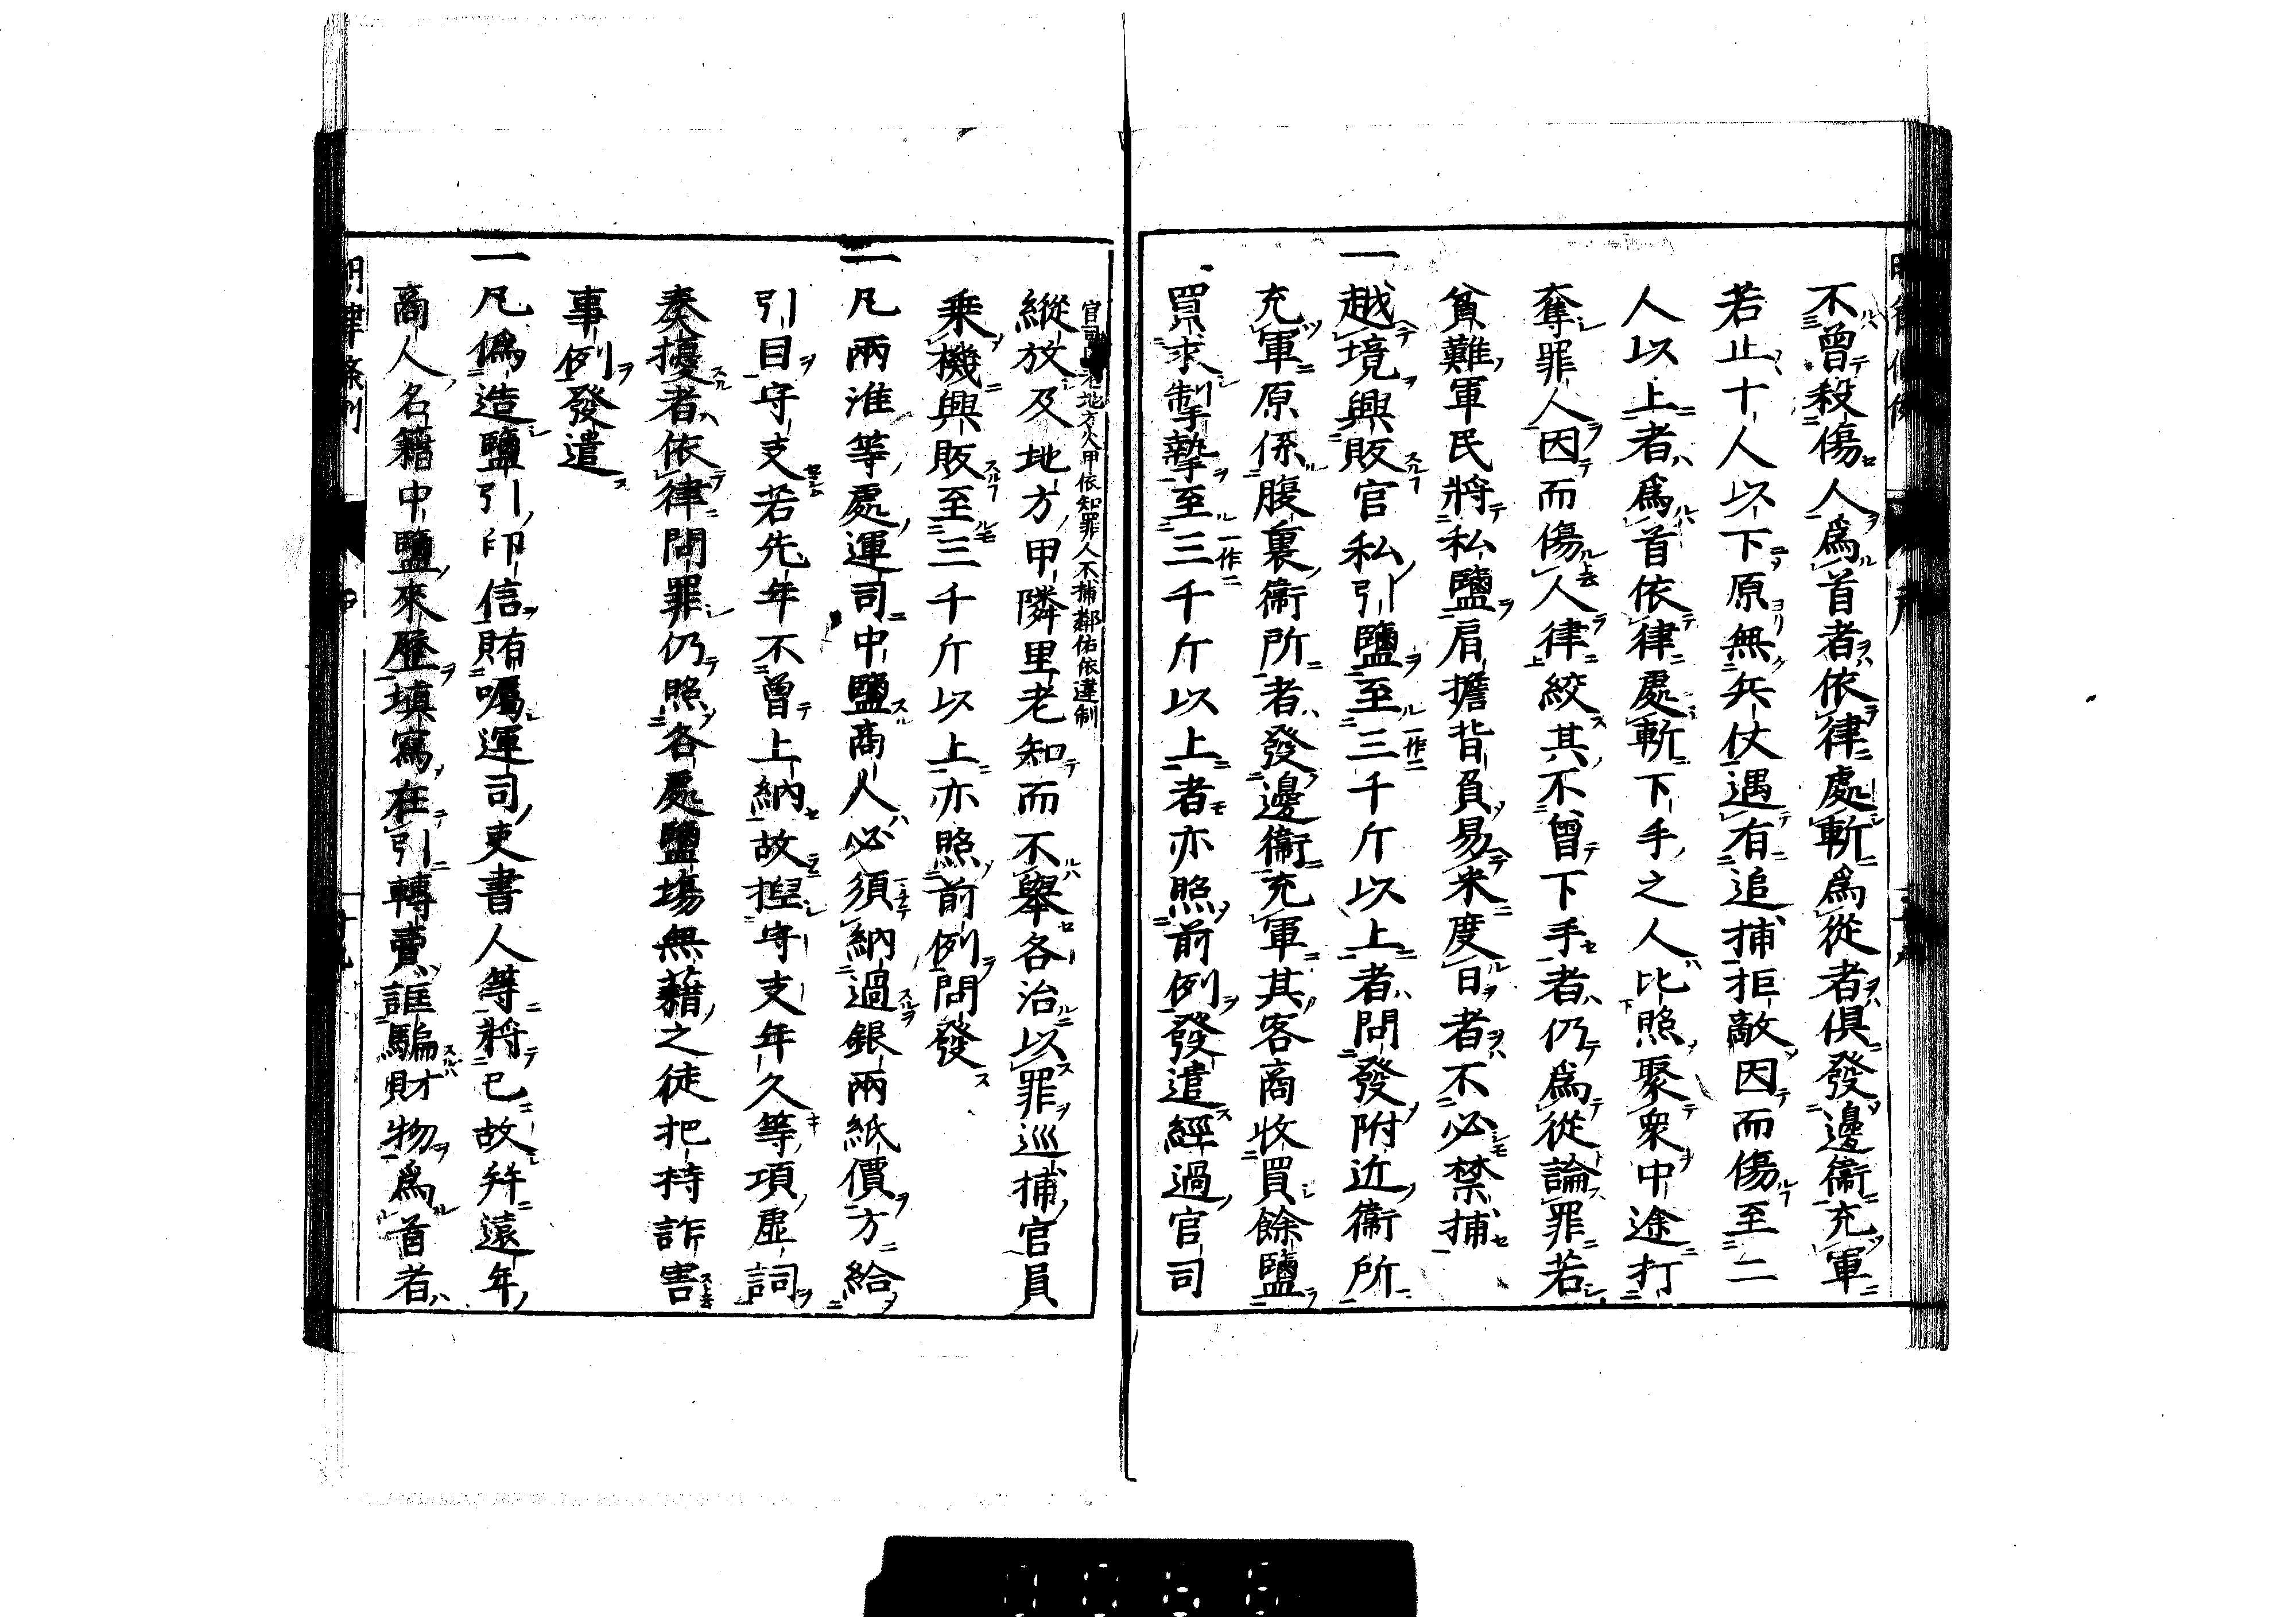 不曾殺傷人爲首者依律處斬爲從者俱發邊衞充軍
若止十人以下原無兵仗遇有追捕拒敵因而傷至二
人以上者爲首依律處斬下手之人比照聚衆中途打
奪罪人因而傷人律絞其不曾下手者仍爲從論罪若
貧難軍民將私鹽肩擔背負易米度日者不必禁捕
一越境興販官私引鹽至三千斤以上者問發附近衞所
充軍原係腹裏衞所者發邊衞充軍其客商收買餘鹽
買求掣摯至三千斤以上者亦照前例發遣經過官司
縱放及地方甲隣里老知而不舉各治以罪巡捕官員
乘機興販至三千斤以上亦照前例問發
一凡兩淮等處運司中鹽商人必須納過銀兩紙價方給
引目守支若先年不曾上納故捏守支年久等項虛詞
奏擾者依律問罪仍照各處鹽塲無藉之徒把持詐害
事例發遣
一凡僞造鹽引印信賄囑運司吏書人等將已故并遠年
商人名籍中鹽來歷塡寫在引轉賣誆騙財物爲首者